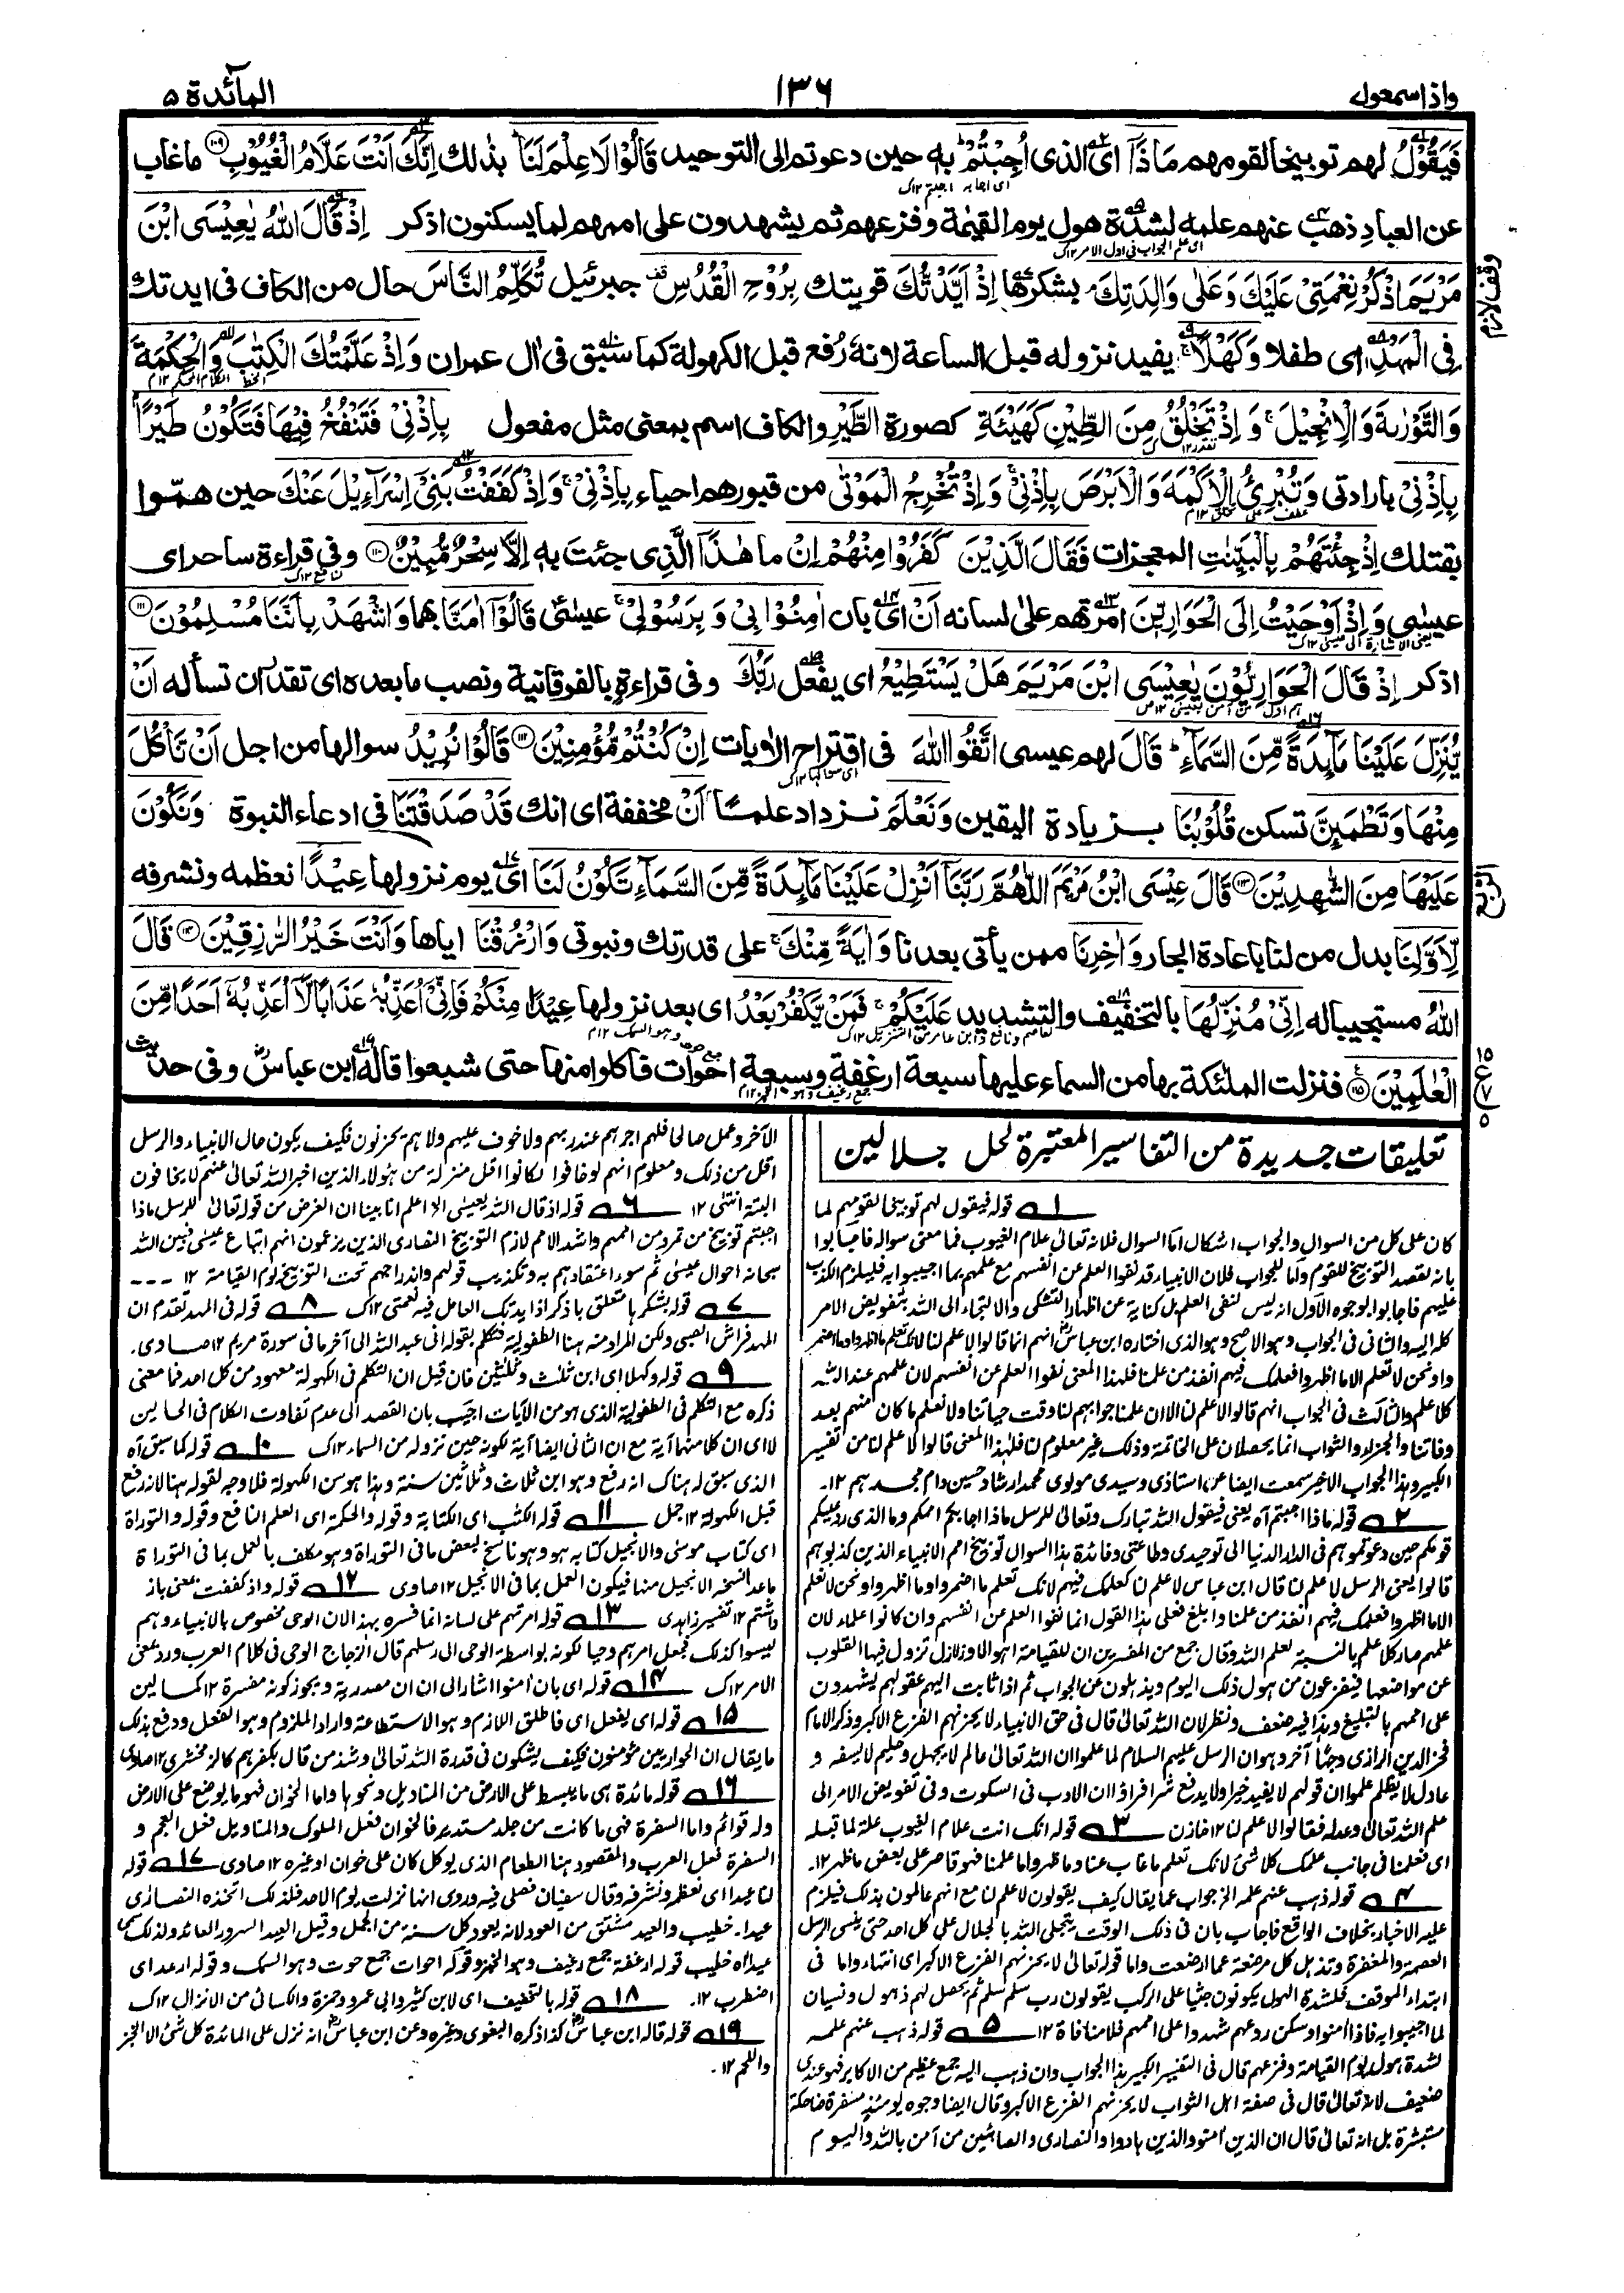 واذاسمعوا
١٣٦
المآئدة ٥
فَيَقُوْلُ لهم توبيخا لقومهم مَاذَآ اى الذى اُجِبْتُمْ به حين دعوتم الى التوحيد قَالُوْا لَا عِلْمَ لَنَا بذلك اِنَّكَ اَنْتَ عَلَّامُ الْغُيُوْبِ ١٠٩ ما غاب
عن العباد ذهب عنهم علمه لشدة هول يوم القيٰمة وفزعهم ثم يشهدون على اممهم لما يسكنون اذكر اِذْ قَالَ اللّٰهُ يٰعِيْسَى ابْنَ
مَرْيَمَ اذْكُرْ نِعْمَتِيْ عَلَيْكَ وَعَلٰى وَالِدَتِكَ بشكرها اِذْ اَيَّدْتُّكَ قويتك بِرُوْحِ الْقُدُسِ جبرئيل تُكَلِّمُ النَّاسَ حال من الكاف فى ايدتك
فِى الْمَهْدِ اى طفلا وَكَهْلًا يفيد نزوله قبل الساعة لانه رُفع قبل الكهولة كما سبق فى اٰل عمران وَاِذْ عَلَّمْتُكَ الْكِتٰبَ وَالْحِكْمَةَ
وَالتَّوْرٰىةَ وَالْاِنْجِيْلَ وَاِذْ تَخْلُقُ مِنَ الطِّيْنِ كَهَيْئَةِ كصورة الطَّيْرِ والكاف اسم بمعنى مثل مفعول بِاِذْنِيْ فَتَنْفُخُ فِيْهَا فَتَكُوْنُ طَيْرًا
بِاِذْنِيْ بارادتى وَتُبْرِئُ الْاَكْمَهَ وَالْاَبْرَصَ بِاِذْنِيْ وَاِذْ تُخْرِجُ الْمَوْتٰى من قبورهم احياء بِاِذْنِيْ وَاِذْ كَفَفْتُ بَنِيْٓ اِسْرَآءِيْلَ عَنْكَ حين همّوا
بقتلك اِذْ جِئْتَهُمْ بِالْبَيِّنٰتِ المعجزات فَقَالَ الَّذِيْنَ كَفَرُوْا مِنْهُمْ اِنْ ما هٰذَآ الَّذِى جئت به اِلَّا سِحْرٌ مُّبِيْنٌ ١١٠ وفى قراءة ساحر اى
عيسٰى وَاِذْ اَوْحَيْتُ اِلَى الْحَوَارِيّٖنَ امرتهم علىٰ لسانه اَنْ اى بان اٰمِنُوْا بِيْ وَبِرَسُوْلِيْ عيسٰى قَالُوْٓا اٰمَنَّا بهما وَاشْهَدْ بِاَنَّنَا مُسْلِمُوْنَ ١١١
اذكر اِذْ قَالَ الْحَوَارِيُّوْنَ يٰعِيْسَى ابْنَ مَرْيَمَ هَلْ يَسْتَطِيْعُ اى يفعل رَبُّكَ وفى قراءة بالفوقانية ونصب ما بعده اى تقدر ان تسأله اَنْ
يُّنَزِّلَ عَلَيْنَا مَآئِدَةً مِّنَ السَّمَآءِ قَالَ لهم عيسى اتَّقُوا اللّٰهَ فى اقتراح الاٰيات اِنْ كُنْتُمْ مُّؤْمِنِيْنَ ١١٢ قَالُوْا نُرِيْدُ سوالها من اجل اَنْ نَّأْكُلَ
مِنْهَا وَتَطْمَئِنَّ تسكن قُلُوْبُنَا بزيادة اليقين وَنَعْلَمَ نزداد علما اَنْ مخففة اى انك قَدْ صَدَقْتَنَا فى ادعاء النبوة وَنَكُوْنَ
عَلَيْهَا مِنَ الشّٰهِدِيْنَ ١١٣ قَالَ عِيْسَى ابْنُ مَرْيَمَ اللّٰهُمَّ رَبَّنَآ اَنْزِلْ عَلَيْنَا مَآئِدَةً مِّنَ السَّمَآءِ تَكُوْنُ لَنَا اى يوم نزولها عِيْدًا نعظمه ونشرفه
لِّاَوَّلِنَا بدل من لنا باعادة الجار وَاٰخِرِنَا ممن يأتى بعدنا وَاٰيَةً مِّنْكَ على قدرتك ونبوتى وَارْزُقْنَا اياها وَاَنْتَ خَيْرُ الرّٰزِقِيْنَ ١١٤ قَالَ
اللّٰهُ مستجيبا له اِنِّيْ مُنَزِّلُهَا بالتخفيف والتشديد عَلَيْكُمْ فَمَنْ يَّكْفُرْ بَعْدُ اى بعد نزولها عِيْدًا مِنْكُمْ فَاِنِّيْٓ اُعَذِّبُهٗ عَذَابًا لَّآ اُعَذِّبُهٗٓ اَحَدًا مِّنَ
الْعٰلَمِيْنَ ١١٥ فنزلت الملٰئكة بها من السماء عليها سبعة ارغفة وسبعة احوات فاكلوا منها حتى شبعوا قاله ابن عباس وفى حديث
وقف لازم
الربع
تعليقات جديدة من التفاسير المعتبرة لحل جلالين
١ قوله فيقول لهم توبيخا لقومهم لما
كان على كل من السوال والجواب اشكال اما السوال فلانه تعالى علام الغيوب فما معنى سواله فاجابوا
بانه لقصد التوبيخ للقوم واما الجواب فلان الانبياء قد نفوا العلم عن انفسهم مع علمهم بما اجيبوا به فليلزم الكذب
عليهم فاجابوا بالوجوه الاول انه ليس لنفى العلم بل كناية عن اظهار التشكى والالتجاء الى الله بتفويض الامر
كله اليه والثانى فى الجواب وهو الاصح وهو الذى اختاره ابن عباس انهم انما قالوا لا علم لنا لانك تعلم ما اظهروا وما اضمروا
ونحن لا نعلم الا ما اظهروا فعلمك فيهم انفذ من علمنا فلهذا المعنى نفوا العلم عن انفسهم لان علمهم عند الله
كلا علم والثالث فى الجواب انهم قالوا لا علم لنا الا ان علمنا جوابهم لنا وقت حياتنا ولا نعلم ما كان منهم بعد
وفاتنا والجزاء والثواب انما يحصلان على الخاتمة وذلك غير معلوم لنا فلهذا المعنى قالوا لا علم لنا من تفسير
الكبير وهذا الجواب الاخير سمعت ايضا عن استاذى وسيدى مولوى محمد ارشاد حسين دام مجدهم ١٢.
٢ قوله ماذا اجبتم آه يعنى فيقول الله تبارك وتعالى للرسل ماذا اجابكم اممكم وما الذى رد عليكم
قومكم حين دعوتموهم فى الدار الدنيا الى توحيدى وطاعتى وفائدة هذا السوال توبيخ امم الانبياء الذين كذبوهم
قالوا يعنى الرسل لا علم لنا قال ابن عباس لا علم لنا كعلمك فيهم لانك تعلم ما اضمروا وما اظهروا ونحن لا نعلم
الا ما اظهروا فعلمك فيهم انفذ من علمنا وابلغ فعلى هذا القول انما نفوا العلم عن انفسهم وان كانوا علماء لان
علمهم صار كلا علم بالنسبة لعلم الله وقال جمع من المفسرين ان للقيامة اهوالا وزلازل تزول فيها القلوب
عن مواضعها فيفزعون من هول ذلك اليوم ويذهلون عن الجواب ثم اذا ثابت اليهم عقولهم يشهدون
على اممهم بالتبليغ وهذا فيه ضعف ونظر لان الله تعالى قال فى حق الانبياء لا يحزنهم الفزع الاكبر وذكر الامام
فخر الدين الرازى وجها آخر وهو ان الرسل عليهم السلام لما علموا ان الله تعالى عالم لا يجهل وحليم لا يسفه و
عادل لا يظلم علموا ان قولهم لا يفيد خيرا ولا يدفع شرا فراؤا ان الادب فى السكوت وفى تفويض الامر الى
علم الله تعالى وعدله فقالوا لا علم لنا ١٢ خازن ٣ قوله انك انت علام الغيوب علة لما قبله
اى فعلمنا فى جانب علمك كلا شئ لانك تعلم ما غاب عنا وما ظهر واما علمنا فهو قاصر على بعض ما ظهر ١٢.
٤ قوله ذهب عنهم علمه الخ جواب عما يقال كيف يقولون لا علم لنا مع انهم عالمون بذلك فيلزم
عليه الاخبار بخلاف الواقع فاجاب بان فى ذلك الوقت يتجلى الله بالجلال على كل احد حتى ينسى الرسل
العصمة والمغفرة وتذهل كل مرضعة عما ارضعت واما قوله تعالى لا يحزنهم الفزع الاكبر اى انتهاء واما فى
ابتداء الموقف فلشدة الهول يكونون جثيا على الركب يقولون رب سلم سلم ثم يحصل لهم ذهول ونسيان
لما اجيبوا به فاذا امنوا وسكن روعهم شهدوا على اممهم فلا منافاة ١٢ ٥ قوله ذهب عنهم علمه
لشدة هول يوم القيامة وفزعهم قال فى التفسير الكبير هذا الجواب وان ذهب اليه جمع عظيم من الاكابر فهو عندى
ضعيف لانه تعالى قال فى صفة اهل الثواب لا يحزنهم الفزع الاكبر وقال ايضا وجوه يومئذ مسفرة ضاحكة
مستبشرة بل انه تعالى قال ان الذين امنوا والذين هادوا والنصارى والصابئين من آمن بالله واليوم
الآخر وعمل صالحا فلهم اجرهم عند ربهم ولا خوف عليهم ولا هم يحزنون فكيف يكون حال الانبياء والرسل
اقل من ذلك ومعلوم انهم لو خافوا لكانوا اقل منزلة من هؤلاء الذين اخبر الله تعالى عنهم لا يخافون
البتة انتهى ١٢ ٦ قوله اذ قال الله يعيسى الخ اعلم انا بينا ان الغرض من قوله تعالى للرسل ماذا
اجبتم توبيخ من تمرد من اممهم واشد الامم لازم التوبيخ النصارى الذين يزعمون انهم اتباع عيسى فبين الله
سبحانه احوال عيسى ثم سوء اعتقادهم به وتكذيب قولهم واندراجهم تحت التوبيخ يوم القيامة ١٢ ---
٧ قوله بشكرها متعلق باذكر اذ ايدتك العامل فيه نعمتى ١٢ك ٨ قوله فى المهد تقدم ان
المهد فراش الصبى ولكن المراد منه هنا الطفولية فتكلم بقوله انى عبد الله الى آخر ما فى سورة مريم ١٢ صاوى.
٩ قوله وكهلا اى ابن ثلث وثلثين فان قيل ان التكلم فى الكهولة معهود من كل احد فما معنى
ذكره مع التكلم فى الطفولية الذى هو من الآيات اجيب بان القصد الى عدم تفاوت الكلام فى الحالين
لا اى ان كلا منهما آية مع ان الثانى ايضا آية لكونه حين نزوله من السماء ١٢ك ١٠ قوله كما سبق آه
الذى سبق له هناك انه رفع وهو ابن ثلاث وثلاثين سنة وهذا هو سن الكهولة فلا وجه لقوله هنا لانه رفع
قبل الكهولة ١٢ جمل ١١ قوله الكتب اى الكتابة وقوله والحكمة اى العلم النافع وقوله والتوراة
اى كتاب موسى والانجيل كتابه هو وهو ناسخ لبعض ما فى التوراة وهو مكلف بالعمل بما فى التوراة
ما عدا نسخه الانجيل منها فيكون العمل بما فى الانجيل ١٢ صاوى ١٢ قوله واذ كففت بمعنى باز
داشتم ١٢ تفسير زاهدى ١٣ قوله امرتهم على لسانه انما فسره بهذا لان الوحى مخصوص بالانبياء وهم
ليسوا كذلك فجعل امرهم وحيا لكونه بواسطة الوحى الى رسلهم قال الزجاج الوحى فى كلام العرب ورد بمعنى
الامر ١٢ك ١٤ قوله اى بان آمنوا اشار الى ان ان مصدرية ويجوز كونه مفسرة ١٢ كمالين
١٥ قوله اى يفعل اى فاطلق اللازم وهو الاستطاعة واراد الملزوم وهو الفعل ودفع بذلك
ما يقال ان الحواريين مؤمنون فكيف يشكون فى قدرة الله تعالى وشذ من قال بكفرهم كالزمخشرى ١٢ صاوى
١٦ قوله مائدة هى ما يبسط على الارض من المناديل ونحوها واما الخوان فهو ما يوضع على الارض
وله قوائم واما السفرة فهى ما كانت من جلد مستدير فالخوان فعل الملوك والمناديل فعل العجم و
السفرة فعل العرب والمقصود هنا الطعام الذى يوكل كان على خوان او غيره ١٢ صاوى ١٧ قوله
لنا عيدا اى نعظمه ونشرفه وقال سفيان نصلى فيه وروى انها نزلت يوم الاحد فلذلك اتخذه النصارى
عيدا. خطيب والعيد مشتق من العود لانه يعود كل سنة من الجمل وقيل العيد السرور العائد ولذلك سمى
عيدا اه خطيب قوله ارغفة جمع رغيف وهو الخبز وقوله احوات جمع حوت وهو السمك وقوله ارعد اى
اضطرب ١٢. ١٨ قوله بالتخفيف اى لابن كثير وابى عمرو وحمزة والكسائى من الانزال ١٢ك
١٩ قوله قاله ابن عباس كذا ذكره البغوى وغيره وعن ابن عباس انه نزل على المائدة كل شئ الا الخبز
واللحم ١٢.